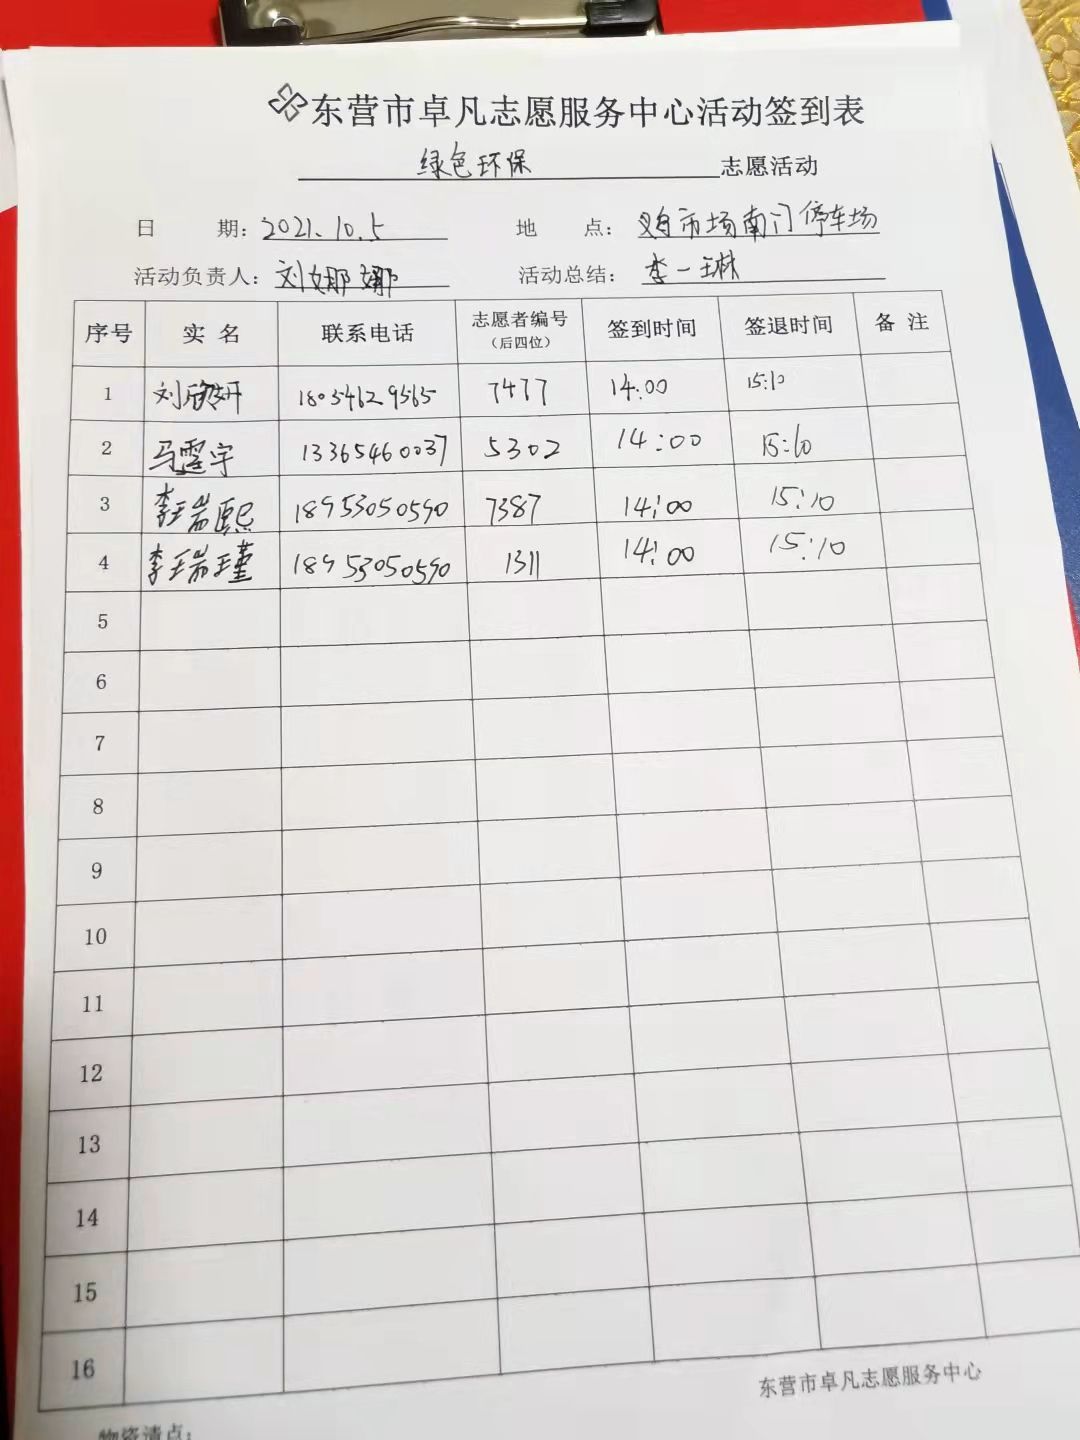 东营市卓凡志愿服务中心活动签到表
绿色环保 志愿活动
日 期: 2021.10.5 地 点: 鸡市场南门停车场
活动负责人: 刘娜娜 活动总结: 李一琳
序号 实 名 联系电话 志愿者编号（后四位） 签到时间 签退时间 备 注
1 刘欣妍 18054629565 7477 14:00 15:10
2 马霆宇 13365460037 5302 14:00 15:10
3 李瑞熙 18953050590 7387 14:00 15:10
4 李瑞瑾 18953050590 1311 14:00 15:10
5
6
7
8
9
10
11
12
13
14
15
16
东营市卓凡志愿服务中心
物资清点: